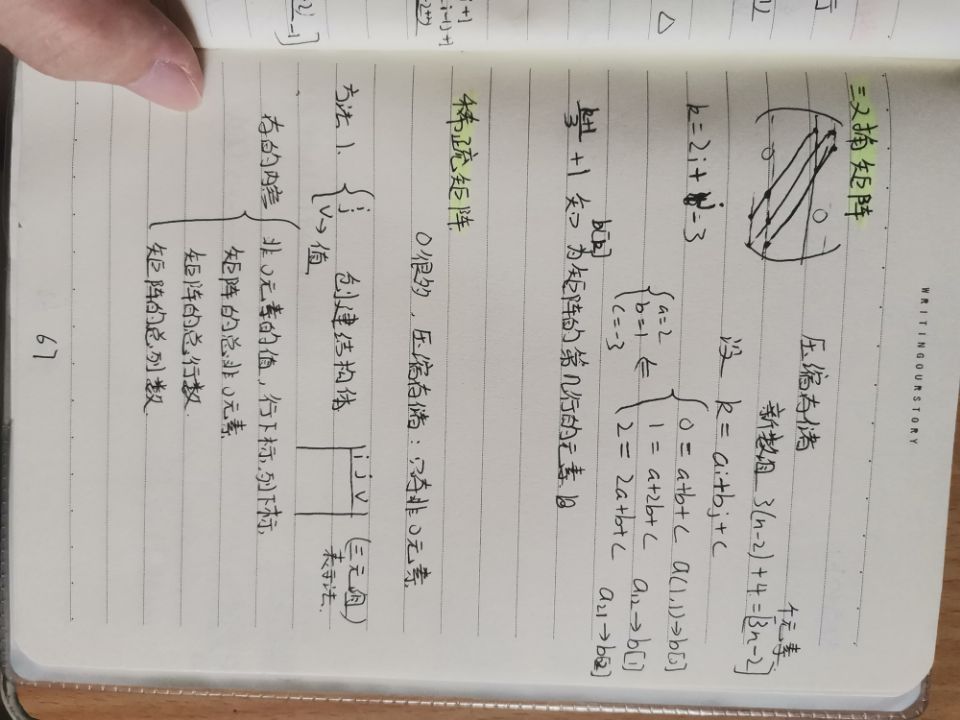 WRITINGOURSTORY
三对角矩阵
压缩存储
新数组 3(n-2)+4=[3n-2]
个元素
0
0
设 k=ai+bj+c
k=2i+j-3
{a=2
b=1
c=-3
⇐
{0=a+b+c a(1,1)→b[0]
1=a+2b+c a12→b[1]
2=2a+b+c a21→b[2]
b[k]
k+1/3 +1 知 为矩阵的第几行的元素
稀疏矩阵
0很多,压缩存储:只存非0元素
方法1、
{i
j
v→值
创建结构体
i j v
(三元组)
表示法.
存的内容
{非0元素的值,行下标,列下标,
矩阵的总非0元素
矩阵的总行数
矩阵的总列数
67